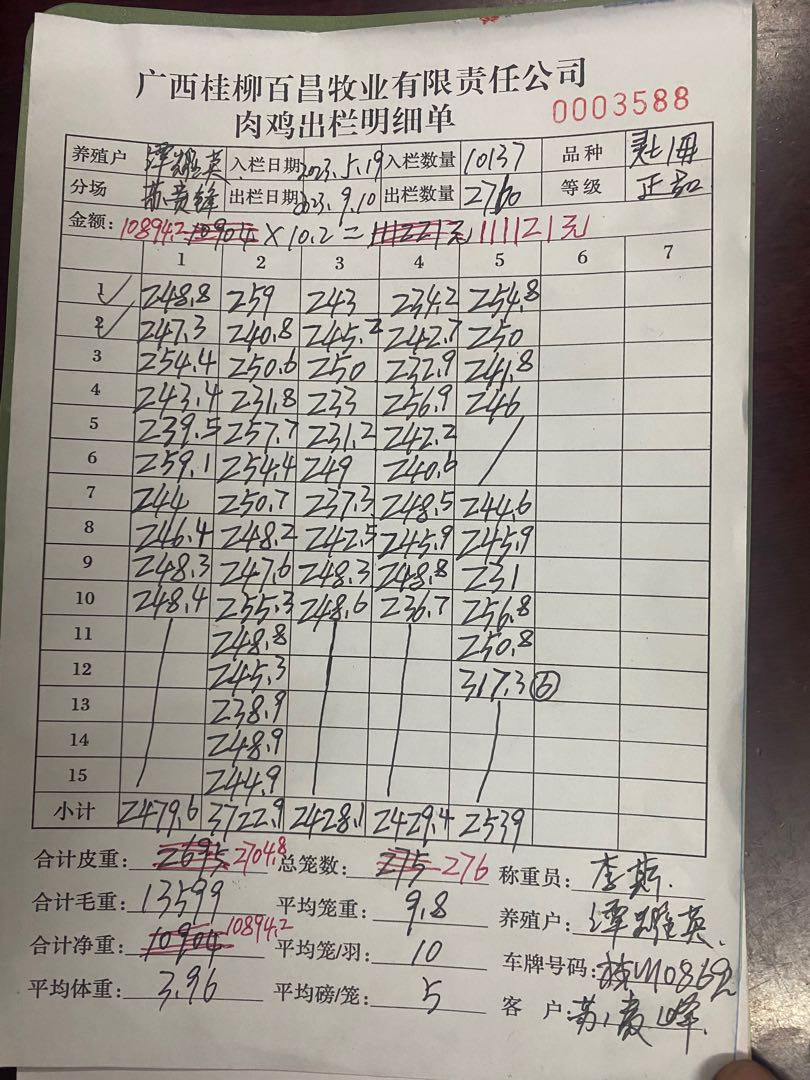 广西桂柳百昌牧业有限责任公司
肉鸡出栏明细单 0003588
养殖户 谭耀英 入栏日期 2023.5.19 入栏数量 10137 品种
分场 出栏日期 2023.9.10 出栏数量 2760 等级
金额: 10894.2 10904 × 10.2 = 111221元 111121元
1 2 3 4 5 6 7
1 248.8 259 243 234.2 254.8
2 247.3 240.8 245.2 242.7 250
3 254.4 250.6 250 232.9 241.8
4 243.4 231.8 233 256.9 246
5 239.5 257.7 231.2 242.2
6 259.1 254.4 249 240.6
7 244 250.7 237.3 248.5 244.6
8 246.4 248.2 242.5 245.9 245.9
9 248.3 247.6 248.3 248.8 231
10 248.4 255.3 248.6 236.7 256.8
11 248.8 250.8
12 245.3 317.3 ⑥
13 238.9
14 248.9
15 244.9
小计 2479.6 3722.9 2428.1 2429.4 2539
合计皮重: 2695 2704.8 总笼数: 275 276 称重员: 李斯.
合计毛重: 13599 平均笼重: 9.8 养殖户: 谭耀英.
合计净重: 10904 10894.2 平均笼/羽: 10 车牌号码:
平均体重: 3.96 平均磅/笼: 5 客 户: